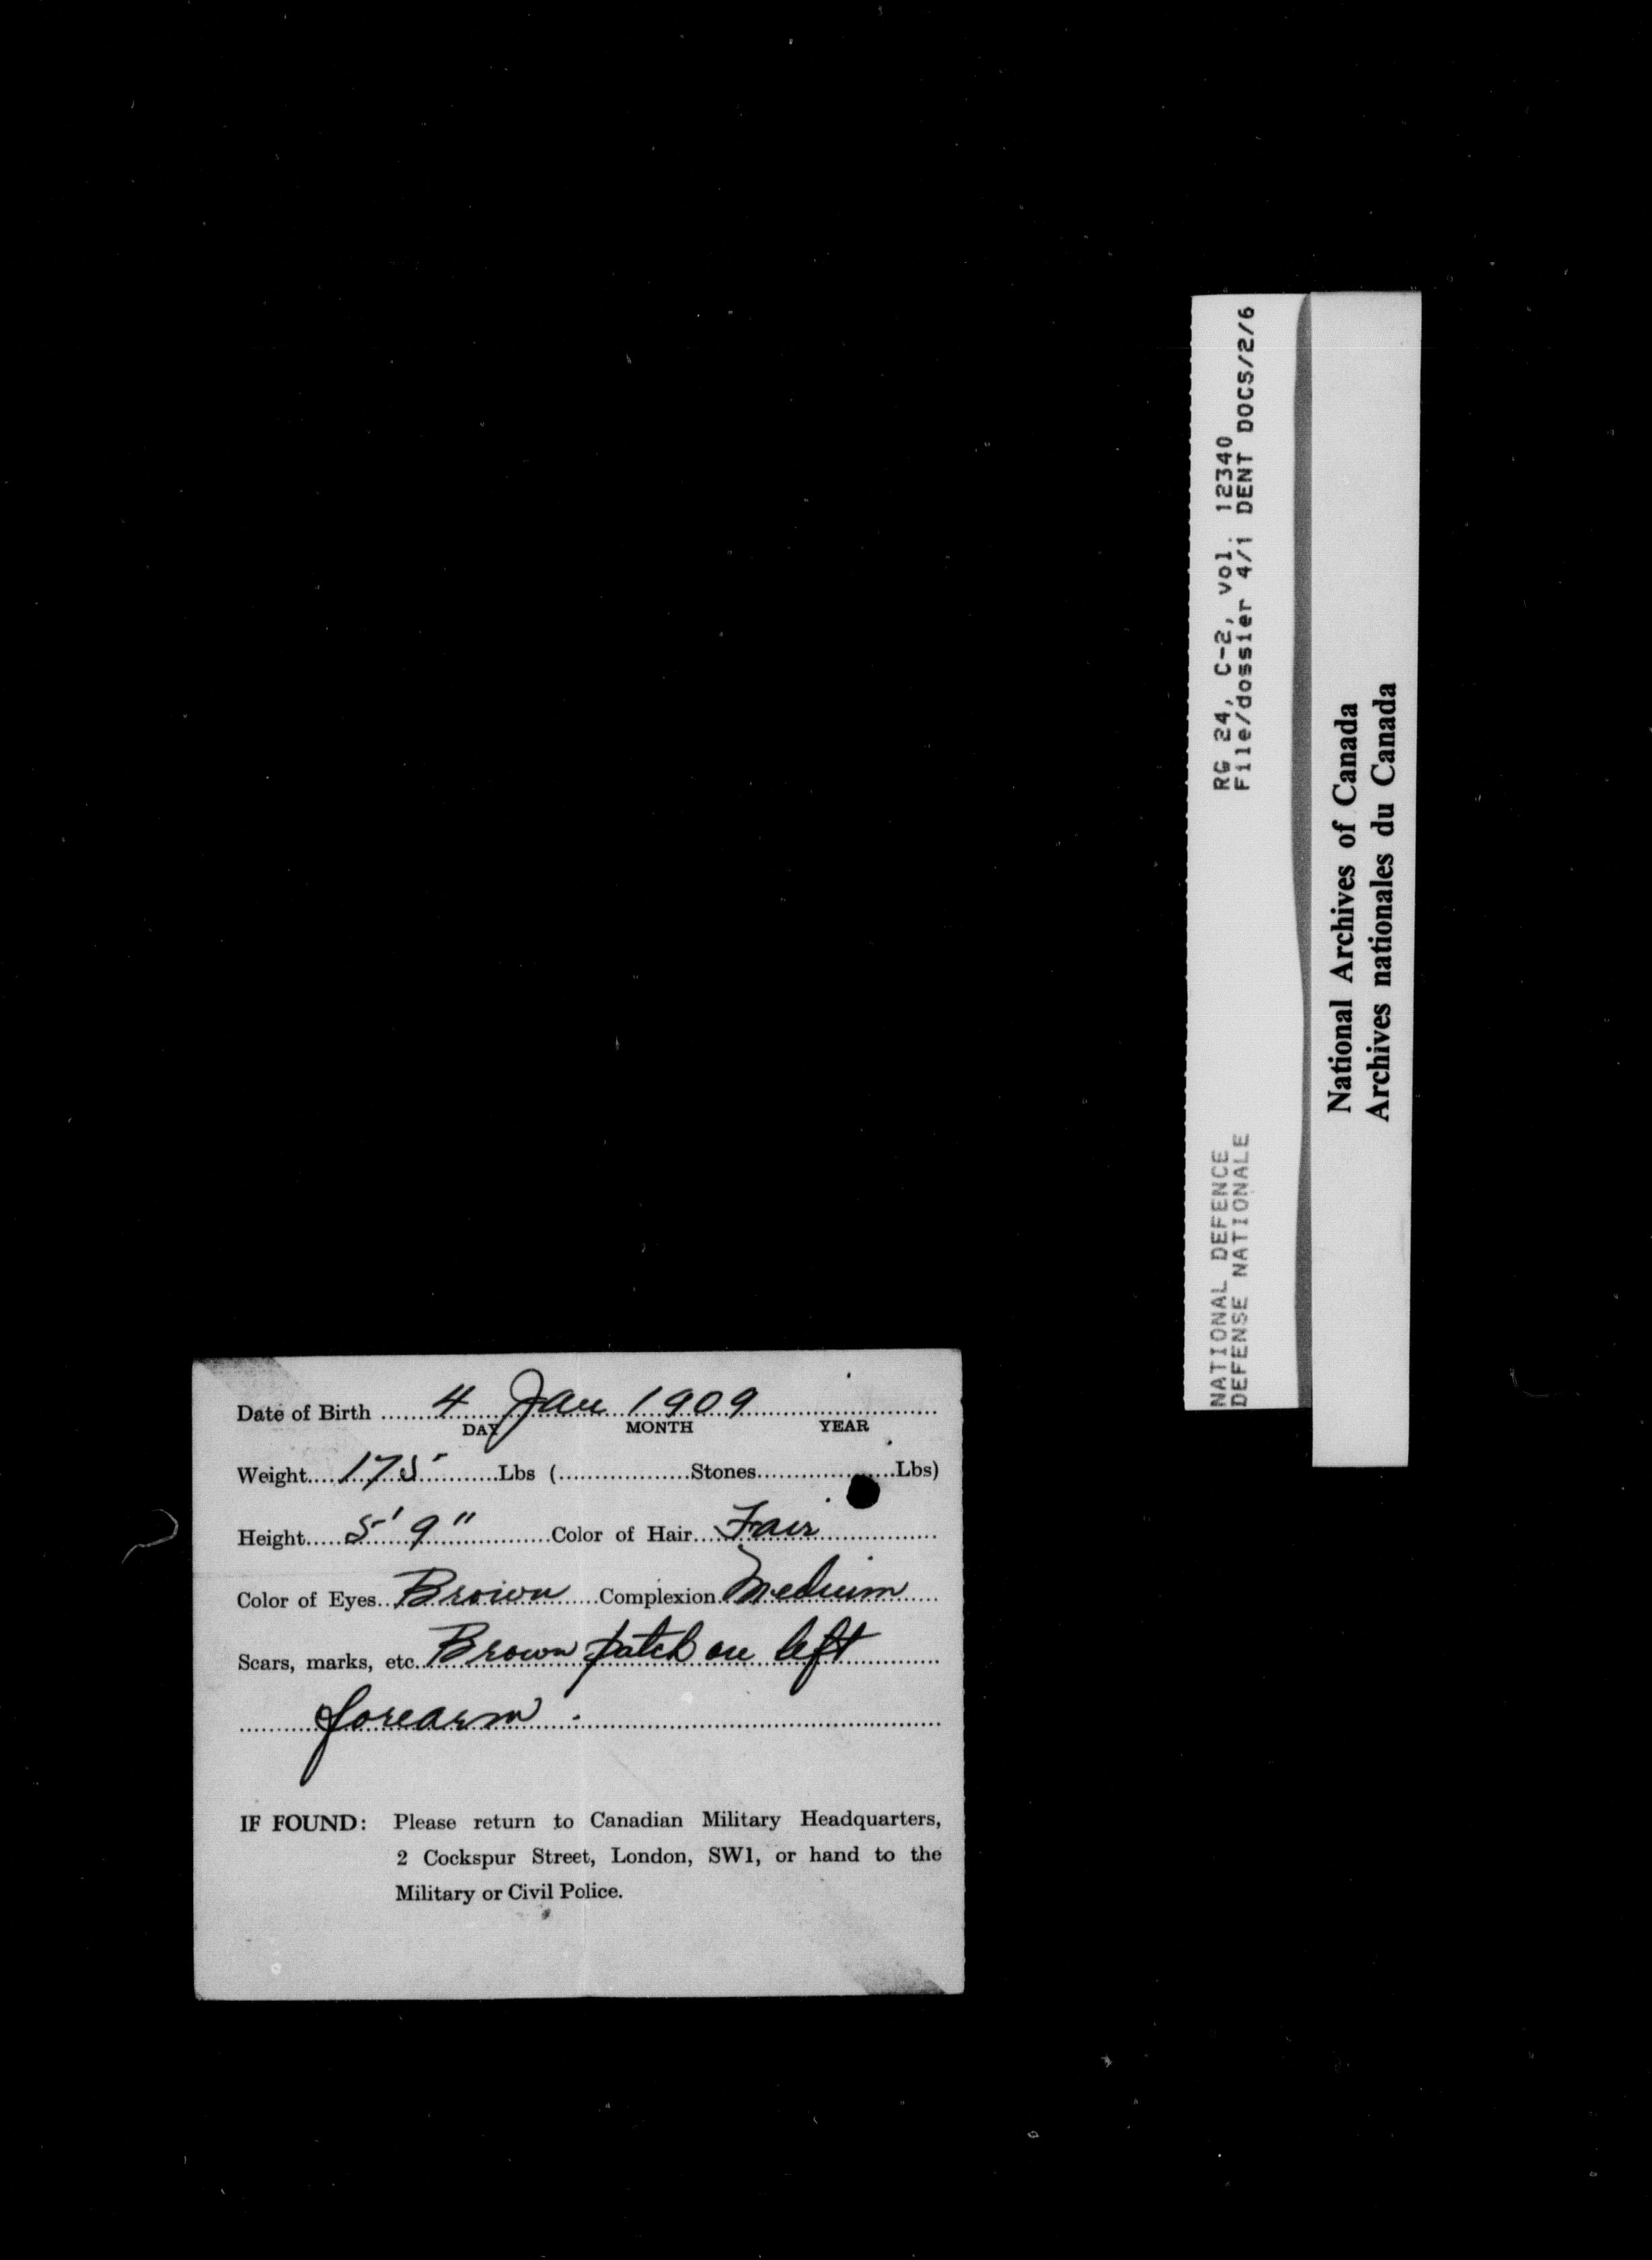 Date of Birth 4 Jan 1909
DAY MONTH YEAR
Weight 175 Lbs ( Stones Lbs)
Height 5' 9" Color of Hair Fair
Color of Eyes Brown Complexion Medium
Scars, marks, etc. Brown patch on left
forearm.
IF FOUND: Please return to Canadian Military Headquarters,
2 Cockspur Street, London, SW1, or hand to the
Military or Civil Police.
NATIONAL DEFENCE RG 24, C-2, vol. 12340
DEFENSE NATIONALE File/dossier 4/1 DENT DOCS/2/6
National Archives of Canada
Archives nationales du Canada